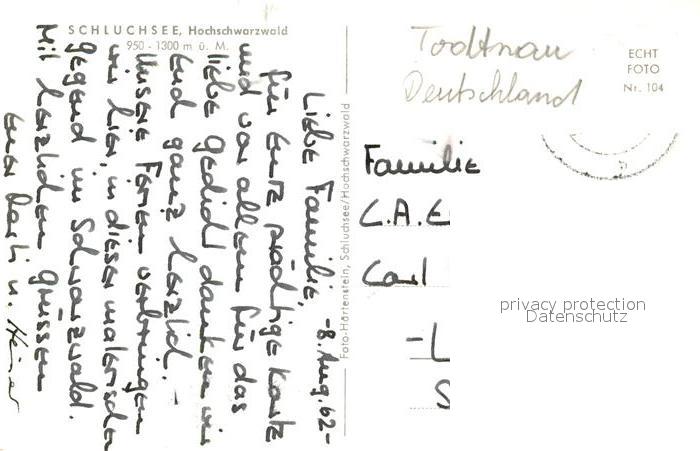 SCHLUCHSEE, Hochschwarzwald
950 - 1300 m ü. M.
Liebe Familie,
-8. Aug. 62-
für Eure prächtige Karte
und vor allem für das
liebe Gedicht danken wir
Euch ganz herzlich. -
Unsere Ferien verbringen
wir hier in dieser malerischen
Gegend im Schwarzwald.
Mit herzlichen Grüssen
Euer u. Heiner
Foto-Härtenstein, Schluchsee/Hochschwarzwald
Todtnau
Deutschland
ECHT
FOTO
Nr. 104
Familie
C.A.E
Carl
-L
S
privacy protection
Datenschutz